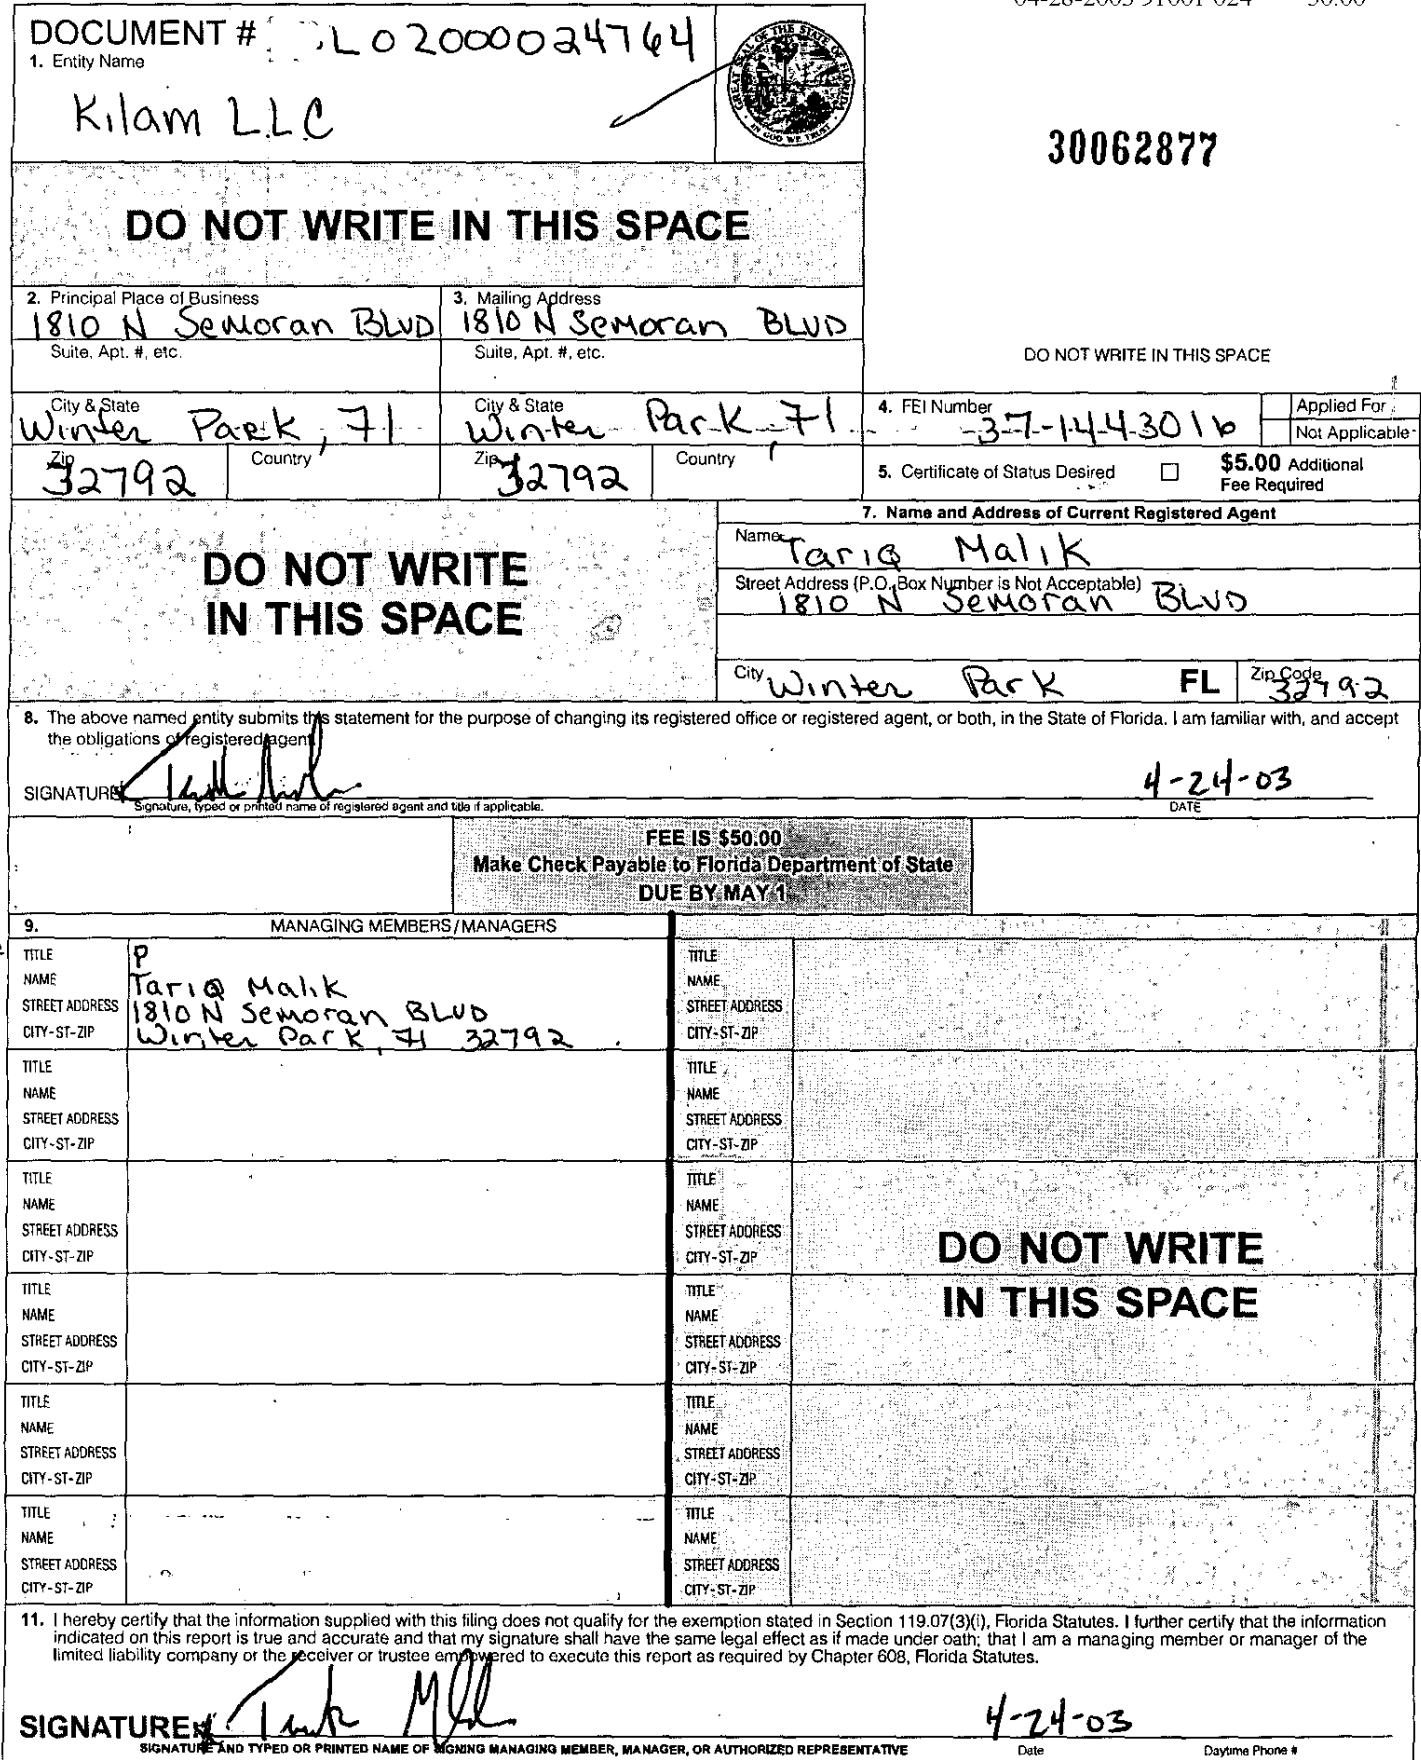 DOCUMENT # L02000024764
1. Entity Name
Kilam LLC
30062877
DO NOT WRITE IN THIS SPACE
2. Principal Place of Business
1810 N Semoran BLVD
Suite, Apt. #, etc.
City & State
Winter Park, Fl
Zip
32792
Country
3. Mailing Address
1810 N Semoran BLVD
Suite, Apt. #, etc.
City & State
Winter Park, Fl
Zip
32792
Country
DO NOT WRITE IN THIS SPACE
4. FEI Number
37-1443016
Applied For
Not Applicable
5. Certificate of Status Desired
$5.00 Additional
Fee Required
DO NOT WRITE
IN THIS SPACE
7. Name and Address of Current Registered Agent
Name
Tariq Malik
Street Address (P.O. Box Number is Not Acceptable)
1810 N Semoran BLVD
City Winter Park FL Zip Code 32792
8. The above named entity submits this statement for the purpose of changing its registered office or registered agent, or both, in the State of Florida. I am familiar with, and accept
the obligations of registered agent
SIGNATURE 4-24-03
Signature, typed or printed name of registered agent and title if applicable. DATE
FEE IS $50.00
Make Check Payable to Florida Department of State
DUE BY MAY 1
9. MANAGING MEMBERS/MANAGERS
TITLE P
NAME Tariq Malik
STREET ADDRESS 1810 N Semoran BLVD
CITY-ST-ZIP Winter Park, Fl 32792
TITLE
NAME
STREET ADDRESS
CITY-ST-ZIP
TITLE
NAME
STREET ADDRESS
CITY-ST-ZIP
TITLE
NAME
STREET ADDRESS
CITY-ST-ZIP
TITLE
NAME
STREET ADDRESS
CITY-ST-ZIP
TITLE
NAME
STREET ADDRESS
CITY-ST-ZIP
TITLE
NAME
STREET ADDRESS
CITY-ST-ZIP
TITLE
NAME
STREET ADDRESS
CITY-ST-ZIP
TITLE
NAME
STREET ADDRESS
CITY-ST-ZIP
TITLE
NAME
STREET ADDRESS
CITY-ST-ZIP
TITLE
NAME
STREET ADDRESS
CITY-ST-ZIP
TITLE
NAME
STREET ADDRESS
CITY-ST-ZIP
DO NOT WRITE
IN THIS SPACE
11. I hereby certify that the information supplied with this filing does not qualify for the exemption stated in Section 119.07(3)(i), Florida Statutes. I further certify that the information
indicated on this report is true and accurate and that my signature shall have the same legal effect as if made under oath; that I am a managing member or manager of the
limited liability company or the receiver or trustee empowered to execute this report as required by Chapter 608, Florida Statutes.
SIGNATURE: 4-24-03
SIGNATURE AND TYPED OR PRINTED NAME OF SIGNING MANAGING MEMBER, MANAGER, OR AUTHORIZED REPRESENTATIVE Date Daytime Phone #